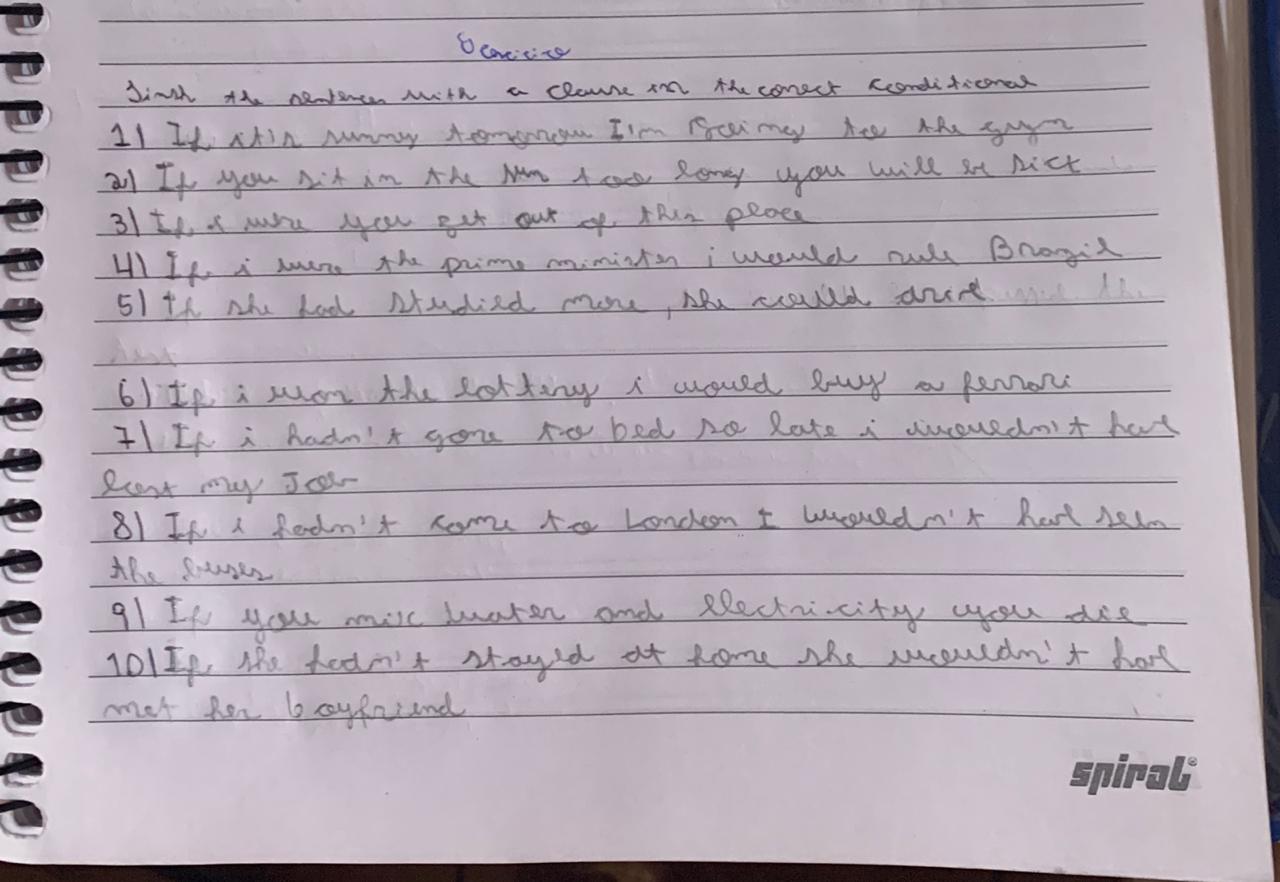 Exercicio
Finsh the sentences with a clause in the corect conditional
1) If it's sunny tomorrow I'm going to the gym
2) If you sit in the sun too long you will be sict
3) If i were you get out of this place
4) If i were the prime minister i would rule Brazil
5) If she had studied more, she would
6) If i won the lottery i would buy a ferrari
7) If i hadn't gone to bed so late i wouldn't have
lost my Job
8) If i hadn't come to London I wouldn't have seen
the buses
9) If you mix water and electricity you die
10) If she hadn't stayed at home she wouldn't have
met her boyfriend
spiral®